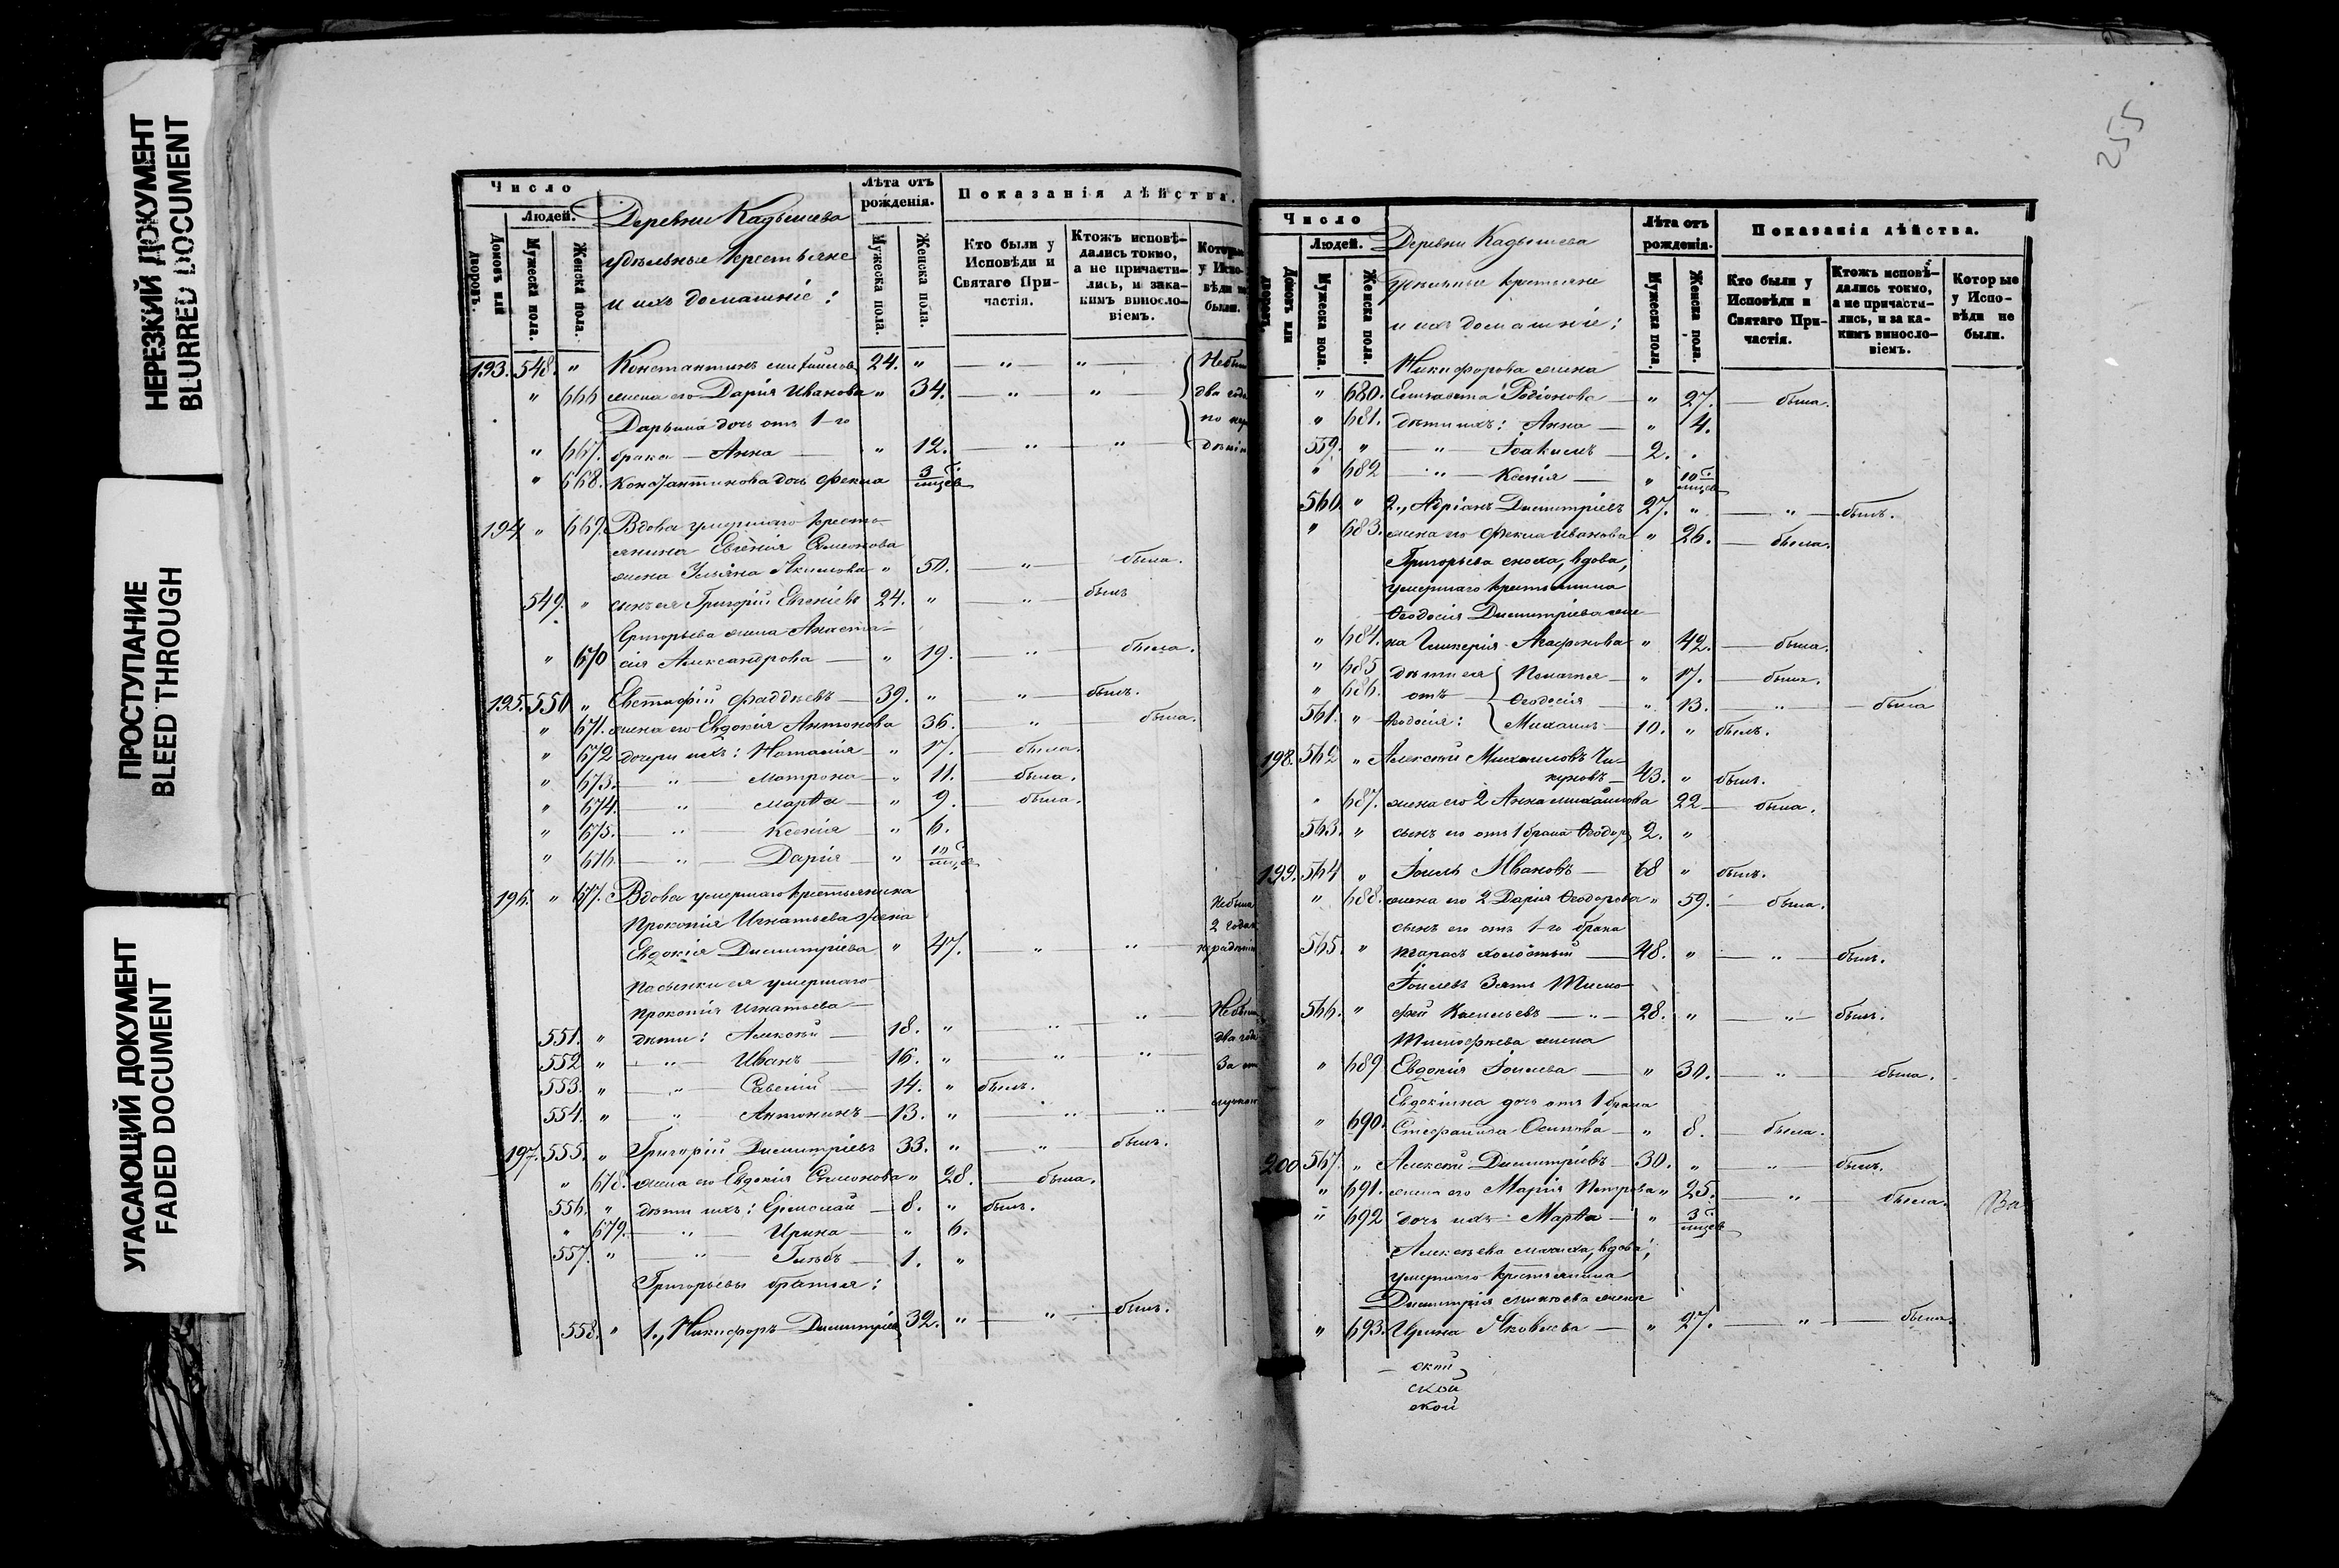 НЕРЕЗКИЙ ДОКУМЕНТ
BLURRED DOCUMENT
ПРОСТУПАНИЕ
BLEED THROUGH
УГАСАЮЩИЙ ДОКУМЕНТ
FADED DOCUMENT
Число
Людей.
Домовъ или дворовъ.
Мужеска пола.
Женска пола.
Деревни Кадышева
удѣльные крестьяне
и ихъ домашніе:
Лѣта отъ рожденія.
Мужеска пола.
Женска пола.
Показанія дѣйства.
Кто были у Исповѣди и Святаго Причастія.
Ктожъ исповѣдались токмо, а не причастились, и за какимъ винословіемъ.
Которые у Исповѣди не были.
193. 548. " Константинъ Михайловъ 24. " " "
" 666 жена его Дарія Иванова " 34. " " два года
Дарьина дочь отъ 1-го
" 667. брака — Анна — " 12. " "
" 668. Константинова дочь Фекла 3 мѣсяцев
194 " 669. Вдова умершаго кресть-
янина Евгенія Семенова
жена Ульяна Акимова " 50. " была.
549. " сынъ ея Григорій Евгеніевъ 24. " " былъ
Григорьева жена Анаста-
" 670 сія Александрова — " 19. " была.
195. 550 " Евстафій Фаддѣевъ — 39. " " былъ.
" 671. жена его Евдокія Антонова 36. " была.
" 672 дочери ихъ: Наталія — " 17. — была.
" 673. " Матрона — " 11. — была.
" 674. " Марѳа — " 9. — была.
" 675. " Ксенія — " 6.
" 676. " Дарія — " 10
196. " 677. Вдова умершаго крестьянина
Прокопія Игнатьева жена
Евдокія Димитріева " 47. " " не была 2 года
пасынки ея умершаго
Прокопія Игнатьева —
551. " дѣти: Алексѣй — 18. " " "
552 " " Иванъ 16. " " "
553. " " Савелій — 14. " былъ.
554. " " Антонинъ — 13. " " "
197. 555. " Григорій Димитріевъ 33. " " былъ.
" 678. жена его Евдокія Семенова " 28. — была.
556. " дѣти ихъ: Ермолай — 8. " былъ.
" 679. " Ирина — " 6.
557. " " Глѣбъ — 1. "
Григорьевы братья:
558. " 1., Никифоръ Димитріев 32. " " былъ.
255
Число
Людей.
Домовъ или дворовъ.
Мужеска пола.
Женска пола.
Деревни Кадышева
удѣльные крестьяне
и ихъ домашніе:
Лѣта отъ рожденія.
Мужеска пола.
Женска пола.
Показанія дѣйства.
Кто были у Исповѣди и Святаго Причастія.
Ктожъ исповѣдались токмо, а не причастились, и за какимъ винословіемъ.
Которые у Исповѣди не были.
Никифорова жена
" 680. Елизавета Родіонова — " 27. — была.
" 681. дѣти ихъ: Анна — " 4.
559. " " Іоакимъ — 2.
" 682 " Ксенія — " 10
560 " 2., Адріанъ Димитріевъ 27. " " былъ.
" 683. жена его Фекла Иванова " 26. — была.
Григорьева сноха, вдова,
умершаго крестьянина
Ѳеодосія Димитріева же-
" 684. на Гликерія Агафонова " 42. — была.
" 685 дѣти ея Пелагея — " 17. — была.
" 686. отъ Ѳеодосія — " 13. " — была
561. " Ѳеодосія: Михаилъ — 10. " былъ.
198. 562 " Алексѣй Михайловъ Чи-
куновъ — 43. " былъ.
" 687. жена его 2 Анна Михайлова 22 — была.
563. " сынъ его отъ 1 брака Ѳеодоръ 2. "
199. 564 " Іоиль Ивановъ — 68 " былъ.
" 688. жена его 2 Дарія Ѳеодорова " 59. — была.
сынъ его отъ 1-го брака
565. " Тарасъ холостый — 48. " " былъ.
Іоилевъ Зять Тимо-
566. " фей Васильевъ — " — 28. " " былъ.
Тимофѣева жена
" 689 Евдокія Іоилева — " 30. " была.
Евдокіина дочь отъ 1 брака
" 690. Стефанида Осипова — " 8. — была.
200 567. " Алексѣй Димитріевъ 30. " " былъ.
" 691. жена его Марія Петрова " 25. " была.
" 692 дочь ихъ Марѳа — " 3 мѣсяцев
Алексѣева мачиха, вдова,
умершаго крестьянина
Димитрія жена
" 693. Ирина Яковлева — " 27. " — была.
ской
ской
ской